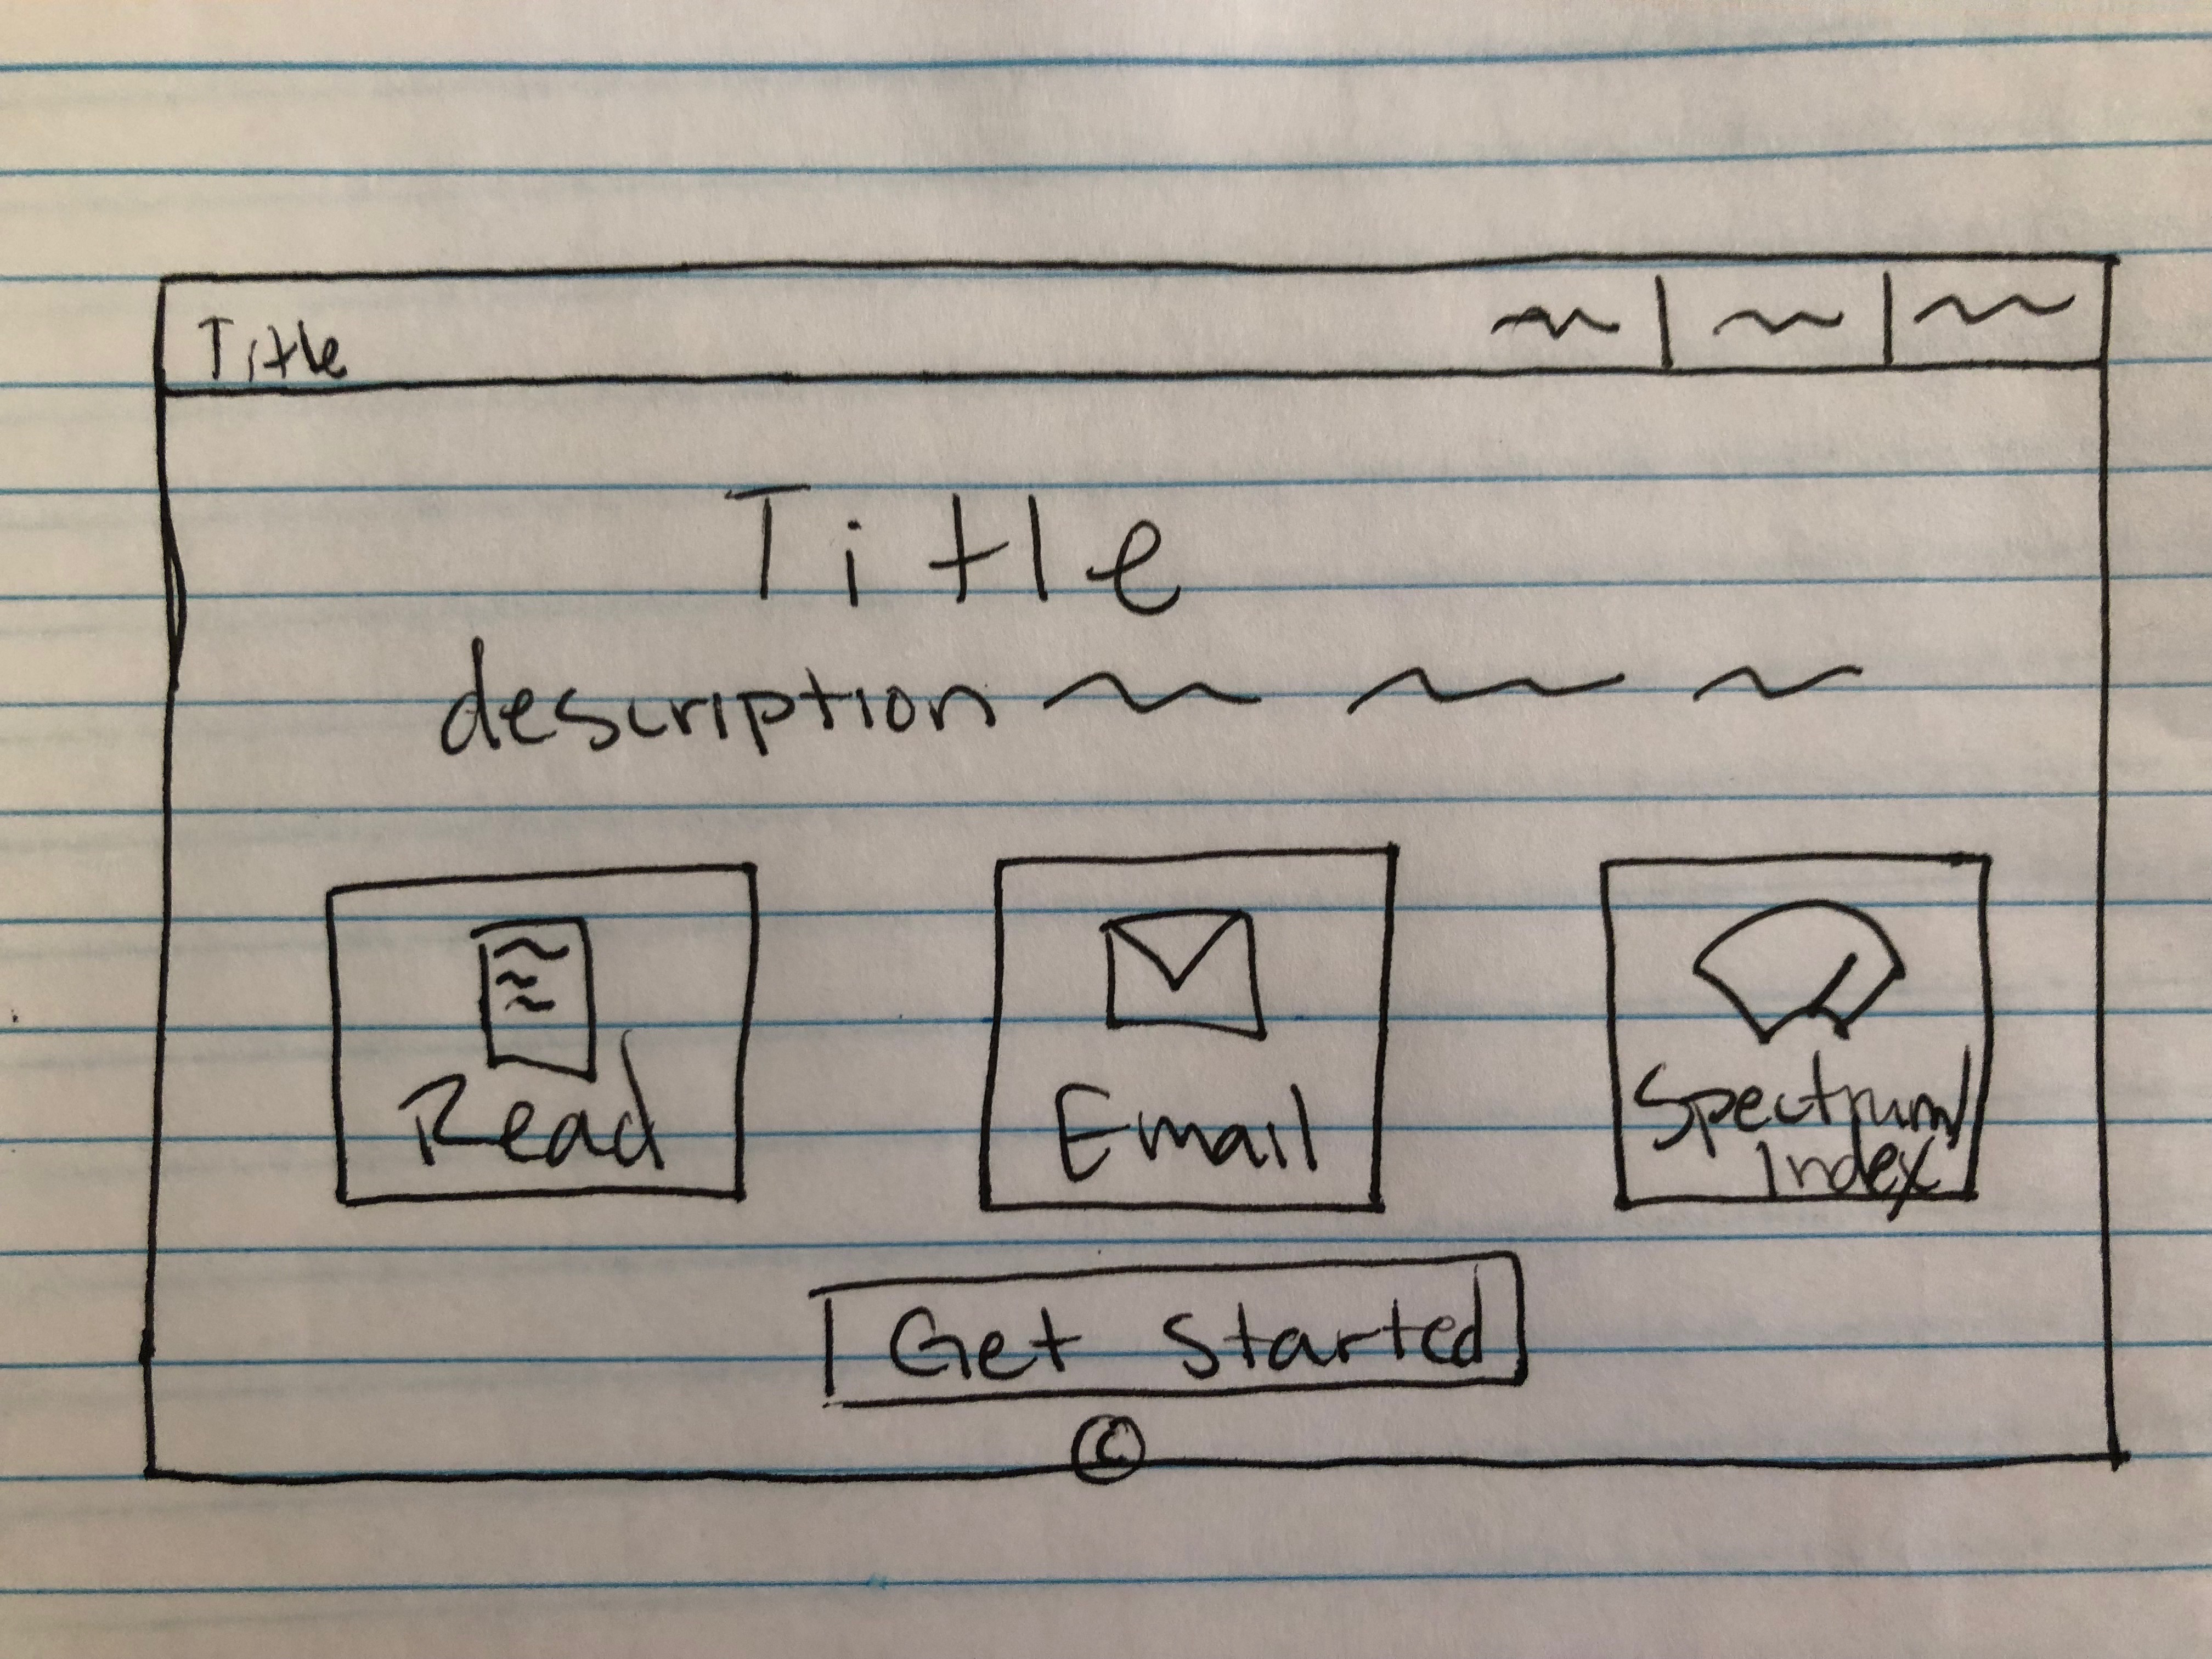 Title
Title
description
Read
Email
Spectrum
Index
Get Started
©